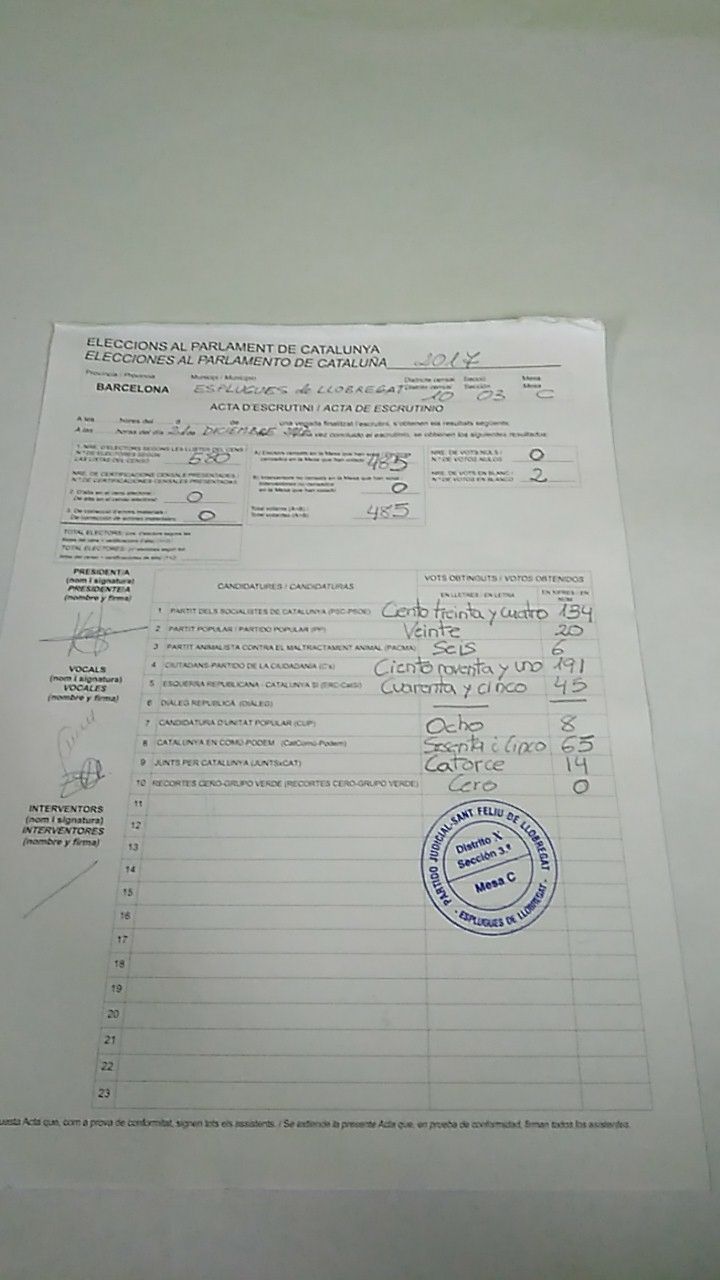 ELECCIONS AL PARLAMENT DE CATALUNYA
ELECCIONES AL PARLAMENTO DE CATALUÑA 2017
Província / Provincia Municipi / Municipio Districte censal Secció Mesa
Distrito censal Sección Mesa
BARCELONA ESPLUGUES de LLOBREGAT 10 03 C
ACTA D'ESCRUTINI / ACTA DE ESCRUTINIO
A les hores del d de una vegada finalitzat l'escrutini, s'obtenen els resultats següents.
A las horas del día 21 de DICIEMBRE vez concluido el escrutinio, se obtienen los siguientes resultados:
1. NRE. D'ELECTORS SEGONS LES LLISTES DEL CENS
N.º DE ELECTORES SEGÚN LAS LISTAS DEL CENSO 580
NRE. DE CERTIFICACIONS CENSALS PRESENTADES
N.º DE CERTIFICACIONES CENSALES PRESENTADAS
2. D'alta en el cens electoral
De alta en el censo electoral 0
3. De correcció d'errors materials
De corrección de errores materiales 0
TOTAL ELECTORS
TOTAL ELECTORES
485
0
Total votants (A+B)
Total votantes (A+B) 485
NRE. DE VOTS NULS
N.º DE VOTOS NULOS 0
NRE. DE VOTS EN BLANC
N.º DE VOTOS EN BLANCO 2
PRESIDENT/A
(nom i signatura)
PRESIDENTE/A
(nombre y firma)
VOCALS
(nom i signatura)
VOCALES
(nombre y firma)
INTERVENTORS
(nom i signatura)
INTERVENTORES
(nombre y firma)
CANDIDATURES / CANDIDATURAS VOTS OBTINGUTS / VOTOS OBTENIDOS
EN LLETRES / EN LETRA EN XIFRES / EN NÚM.
1 PARTIT DELS SOCIALISTES DE CATALUNYA (PSC-PSOE) Ciento treinta y cuatro 134
2 PARTIT POPULAR / PARTIDO POPULAR (PP) Veinte 20
3 PARTIT ANIMALISTA CONTRA EL MALTRACTAMENT ANIMAL (PACMA) Seis 6
4 CIUTADANS-PARTIDO DE LA CIUDADANÍA (C's) Ciento noventa y uno 191
5 ESQUERRA REPUBLICANA - CATALUNYA SÍ (ERC-CatSí) Cuarenta y cinco 45
6 DIÀLEG REPUBLICÀ (DIÀLEG)
7 CANDIDATURA D'UNITAT POPULAR (CUP) Ocho 8
8 CATALUNYA EN COMÚ-PODEM (CatComú-Podem) Sesenta i Cinco 65
9 JUNTS PER CATALUNYA (JUNTSxCAT) Catorce 14
10 RECORTES CERO-GRUPO VERDE (RECORTES CERO-GRUPO VERDE) Cero 0
11
12
13
14
15
16
17
18
19
20
21
22
23
PARTIDO JUDICIAL-SANT FELIU DE LLOBREGAT
Distrito X
Sección 3.ª
Mesa C
- ESPLUGUES DE LLOBREGAT -
uesta Acta que, com a prova de conformitat, signen tots els assistents. / Se extiende la presente Acta que, en prueba de conformidad, firman todos los asistentes.